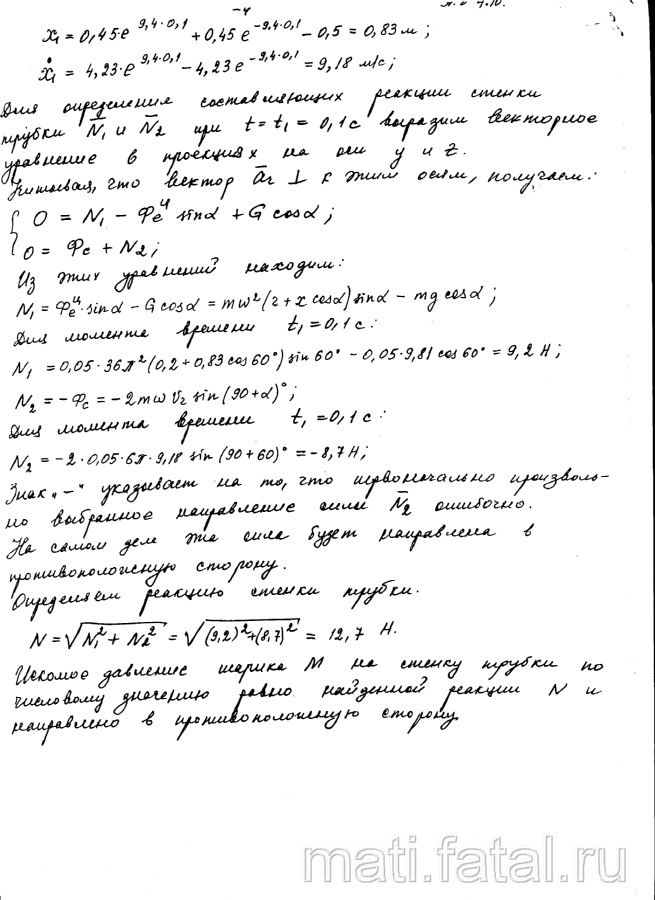 x₁ = 0,45·e^{9,4·0,1} + 0,45 e^{-9,4·0,1} - 0,5 = 0,83 м;
ẋ₁ = 4,23·e^{9,4·0,1} - 4,23 e^{-9,4·0,1} = 9,18 м/с;
Для определения составляющих реакции стенки
трубки N̄₁ и N̄₂ при t = t₁ = 0,1 с выразим векторное
уравнение в проекциях на оси y и z.
Учитывая, что вектор ār ⊥ к этим осям, получаем:
{ 0 = N₁ - Фeᶸ sinα + G cosα;
0 = Фc + N₂;
Из этих уравнений находим:
N₁ = Фeᶸ·sinα - G cosα = mω²(r + x cosα) sinα - mg cosα;
Для момента времени t₁ = 0,1 с:
N₁ = 0,05·36π²(0,2 + 0,83 cos 60°) sin 60° - 0,05·9,81 cos 60° = 9,2 Н;
N₂ = -Фc = -2mω Vr sin(90+α)°;
Для момента времени t₁ = 0,1 с:
N₂ = -2·0,05·6π·9,18 sin(90+60)° = -8,7 Н;
Знак „-“ указывает на то, что первоначально произволь-
но выбранное направление силы N̄₂ ошибочно.
На самом деле эта сила будет направлена в
противоположную сторону.
Определяем реакцию стенки трубки.
N = √(N₁² + N₂²) = √((9,2)² + (8,7)²) = 12,7 Н.
Искомое давление шарика М на стенку трубки по
числовому значению равно найденной реакции N и
направлено в противоположную сторону.
mati.fatal.ru